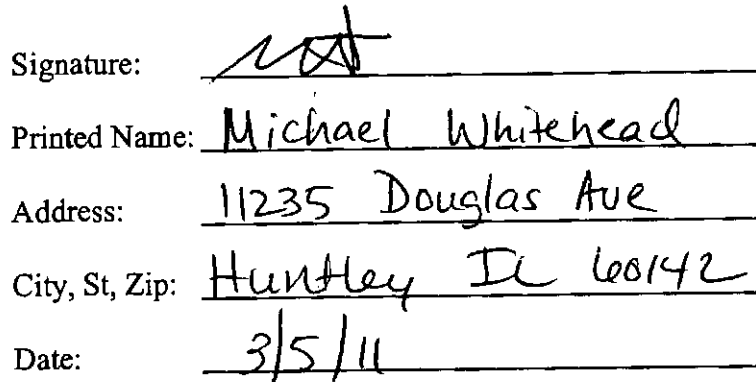 Signature:
Printed Name: Michael Whitehead
Address: 11235 Douglas Ave
City, St, Zip: Huntley IL 60142
Date: 3/5/11